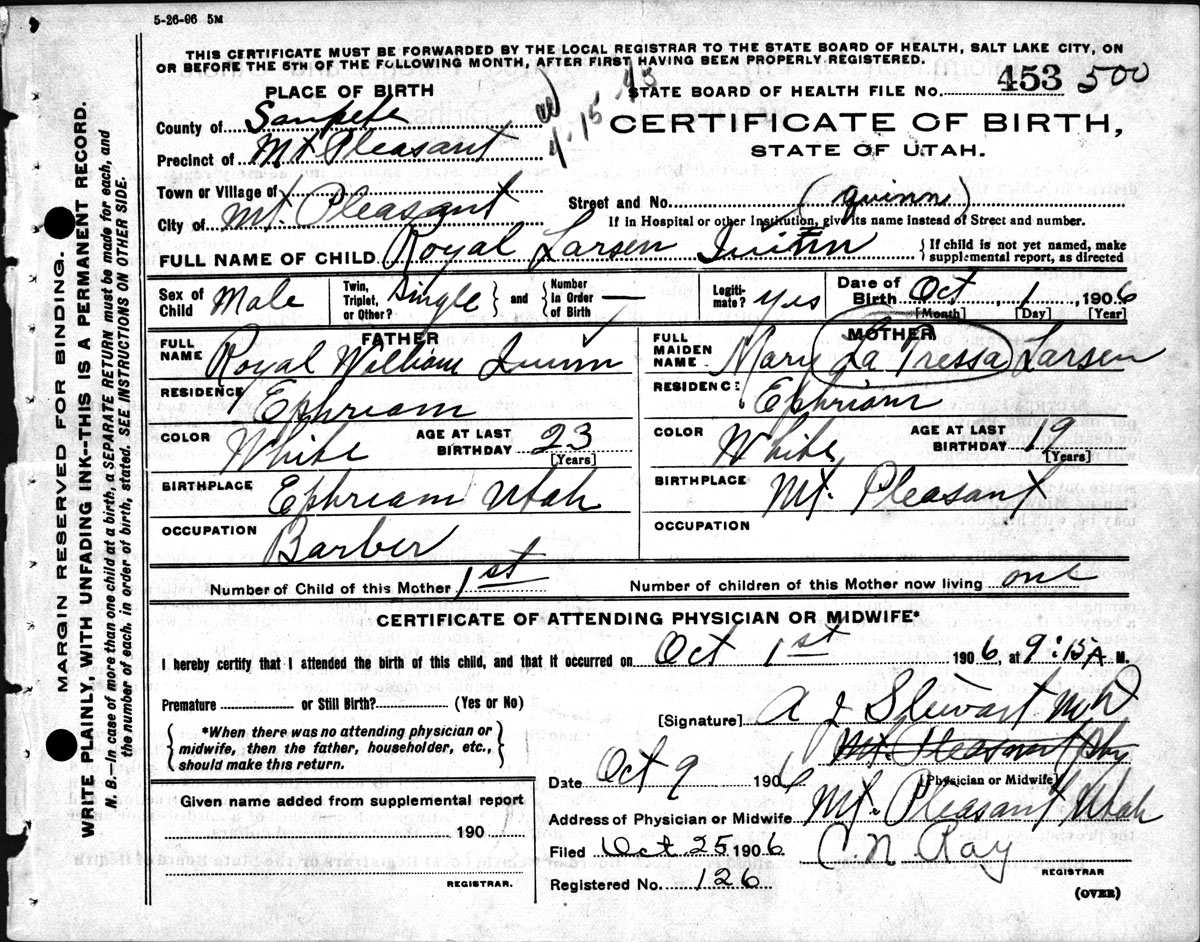 5-26-06 5M
THIS CERTIFICATE MUST BE FORWARDED BY THE LOCAL REGISTRAR TO THE STATE BOARD OF HEALTH, SALT LAKE CITY, ON
OR BEFORE THE 5TH OF THE FOLLOWING MONTH, AFTER FIRST HAVING BEEN PROPERLY REGISTERED.
PLACE OF BIRTH
STATE BOARD OF HEALTH FILE No. 453 500
County of Sanpete
4-15-43
CERTIFICATE OF BIRTH,
STATE OF UTAH.
Precinct of Mt Pleasant
Town or Village of
Street and No. (Quinn)
City of Mt. Pleasant
If in Hospital or other Institution, give its name instead of Street and number.
FULL NAME OF CHILD Royal Larsen Quinn
{If child is not yet named, make supplemental report, as directed
Sex of Child Male
Twin, Triplet, or Other? Single } and { Number In Order of Birth —
Legitimate? Yes
Date of Birth Oct, 1, 1906
[Month] [Day] [Year]
FATHER
FULL NAME Royal William Quinn
RESIDENCE Ephriam
COLOR White AGE AT LAST BIRTHDAY 23
[Years]
BIRTHPLACE Ephriam Utah
OCCUPATION Barber
MOTHER
FULL MAIDEN NAME Mary La Pressa Larsen
RESIDENCE Ephriam
COLOR White AGE AT LAST BIRTHDAY 19
[Years]
BIRTHPLACE Mt. Pleasant
OCCUPATION
Number of Child of this Mother 1st Number of children of this Mother now living one
CERTIFICATE OF ATTENDING PHYSICIAN OR MIDWIFE*
I hereby certify that I attended the birth of this child, and that it occurred on Oct 1st 1906, at 9:15 A M.
Premature or Still Birth? (Yes or No)
{*When there was no attending physician or midwife, then the father, householder, etc., should make this return.}
[Signature] A J Stewart MD
Mt. Pleasant
Date Oct 9 1906
[Physician or Midwife]
Address of Physician or Midwife Mt. Pleasant Utah
Filed Oct 25 1906 C. N. Ray
REGISTRAR
Registered No. 126
(OVER)
Given name added from supplemental report
190
REGISTRAR.
MARGIN RESERVED FOR BINDING.
WRITE PLAINLY, WITH UNFADING INK--THIS IS A PERMANENT RECORD.
N. B.—In case of more than one child at a birth, a SEPARATE RETURN must be made for each, and
the number of each, in order of birth, stated. SEE INSTRUCTIONS ON OTHER SIDE.